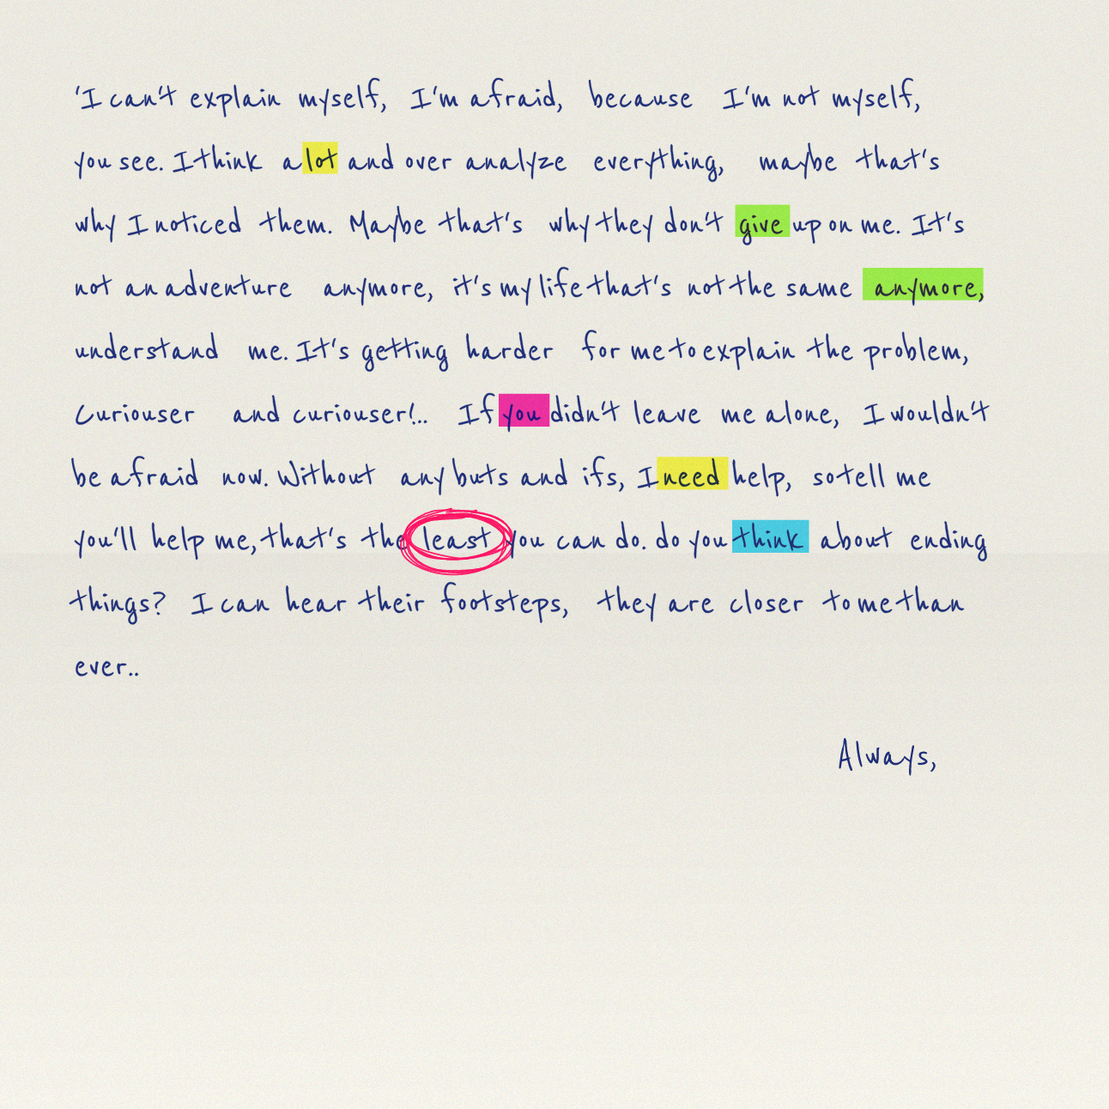 'I can't explain myself, I'm afraid, because I'm not myself,
you see. I think a lot and over analyze everything, maybe that's
why I noticed them. Maybe that's why they don't give up on me. It's
not an adventure anymore, it's my life that's not the same anymore,
understand me. It's getting harder for me to explain the problem,
Curiouser and curiouser!.. If you didn't leave me alone, I wouldn't
be afraid now. Without any buts and ifs, I need help, so tell me
you'll help me, that's the least you can do. do you think about ending
things? I can hear their footsteps, they are closer to me than
ever..
Always,